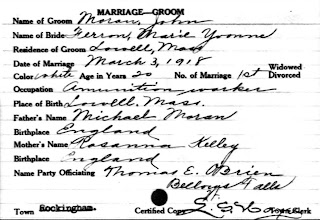 MARRIAGE—GROOM
Name of Groom Moran, John
Name of Bride Ferron, Marie Yvonne
Residence of Groom Lowell, Mass
Date of Marriage March 3, 1918 Widowed
Color white Age in Years 20 No. of Marriage 1st Divorced
Occupation Amunition worker
Place of Birth Lowell, Mass.
Father's Name Michael Moran
Birthplace England
Mother's Name Rosanna Kelley
Birthplace England
Name Party Officiating Thomas E. O'Brien
Bellows Falls
Town Rockingham. Certified Copy Clerk